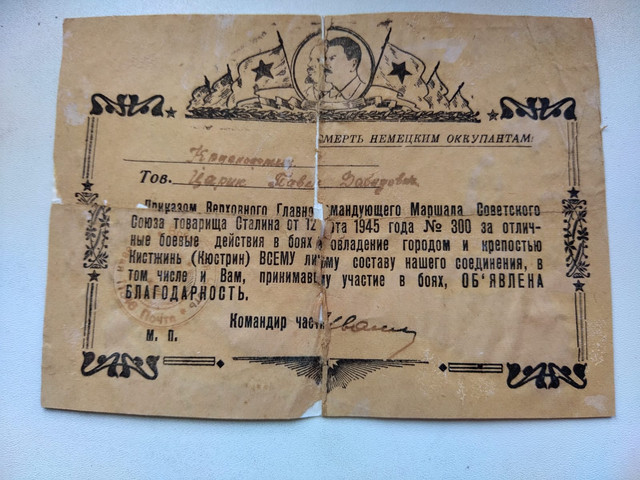 СМЕРТЬ НЕМЕЦКИМ ОККУПАНТАМ!
Красноармеец
Тов. Царик Павел Давидович
Приказом Верховного Главнокомандующего Маршала Советского
Союза товарища Сталина от 12 марта 1945 года № 300 за отлич-
ные боевые действия в боях и овладение городом и крепостью
Кистжинь (Кюстрин) ВСЕМУ личному составу нашего соединения, в
том числе и Вам, принимавшему участие в боях, ОБ‘ЯВЛЕНА
БЛАГОДАРНОСТЬ.
Командир части
М. П.
Почта